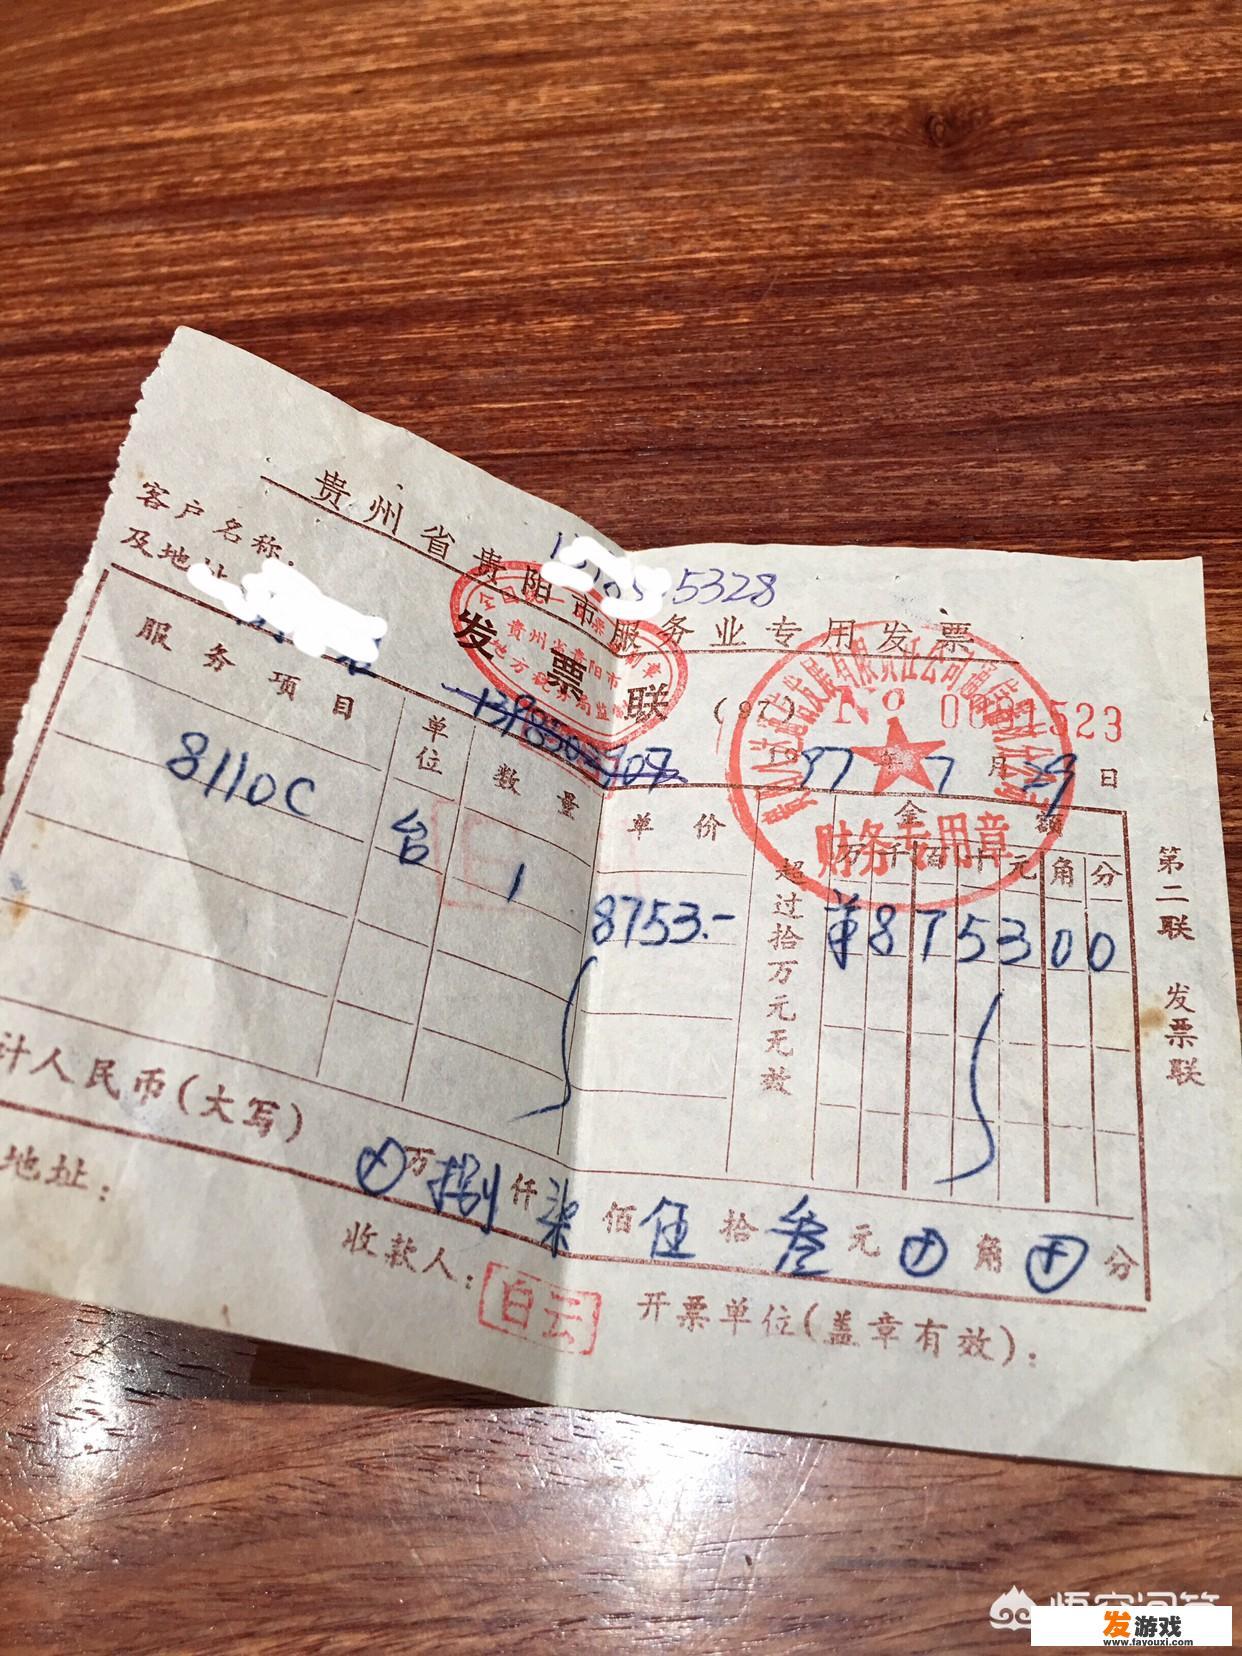 贵州省贵阳市服务业专用发票
5328
发票联
(97)
No
523
客户名称
及地址
1997年7月29日
服务项目 单位 数量 单价 金额
超过拾万元无效
万 千 百 十 元 角 分
8110C 台 1 8753.- 875300
第二联 发票联
计人民币(大写) ⊕万捌仟柒佰伍拾叁元⊕角⊕分
地址:
收款人: 白云
开票单位(盖章有效):
贵州省贵阳市
财务专用章
发游戏
www.fayouxi.com